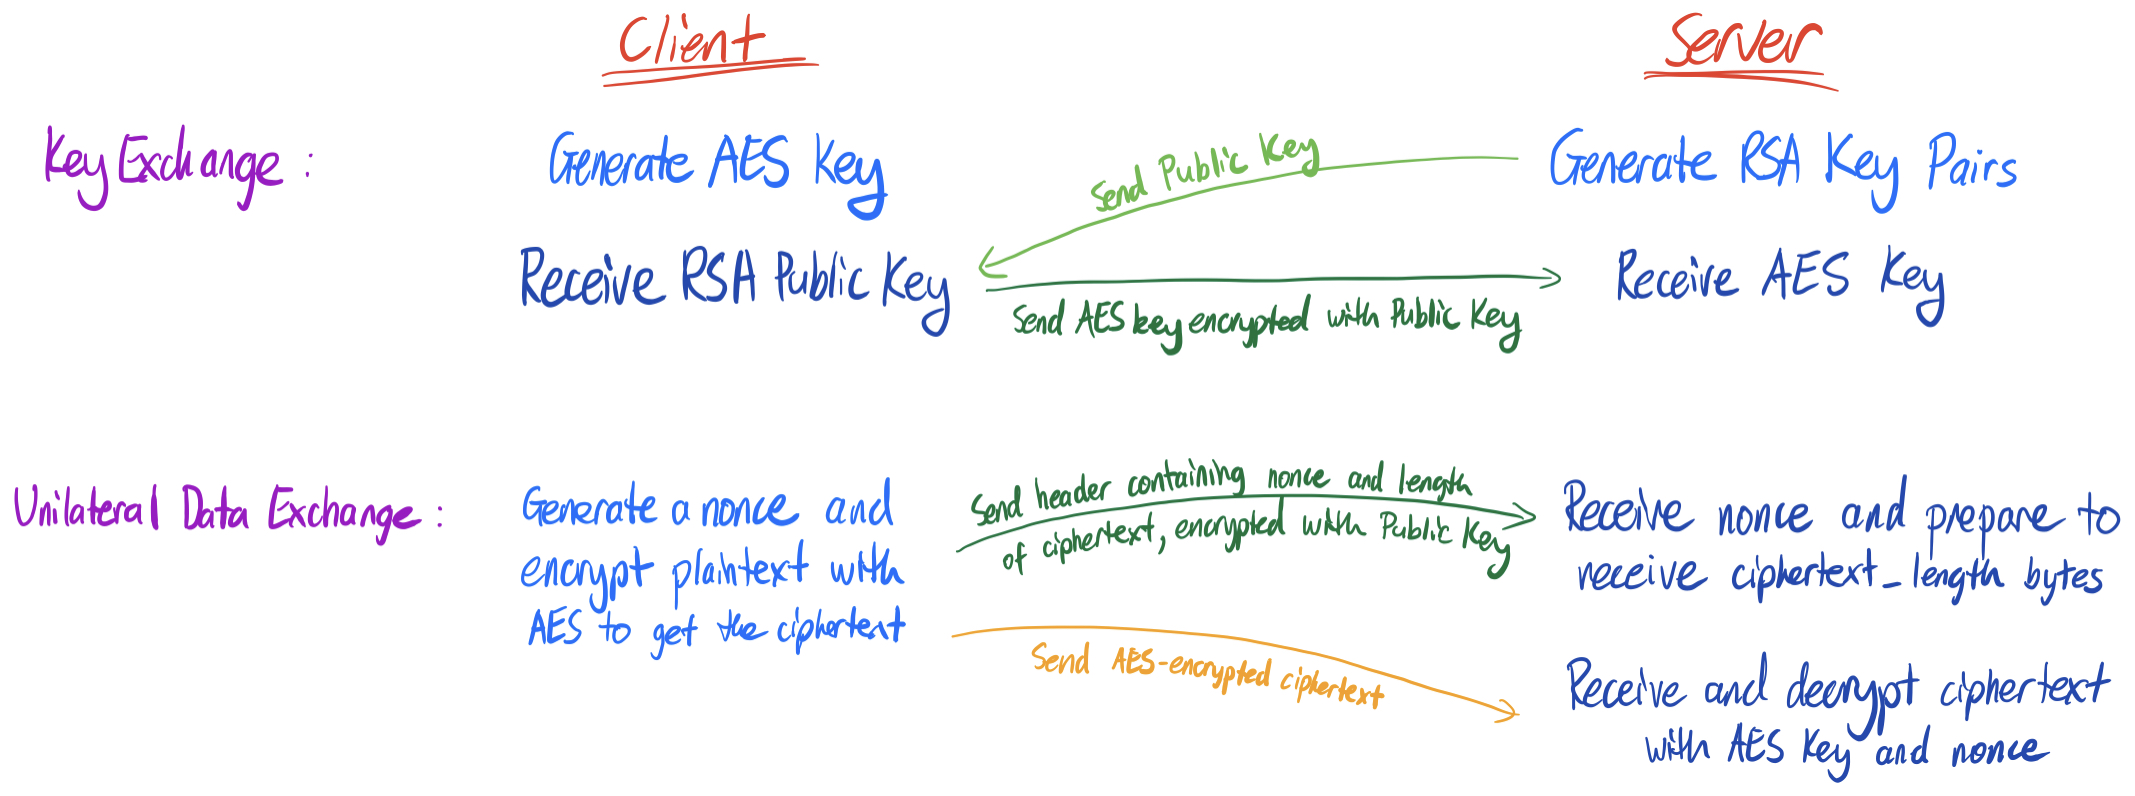 Client
Server
Key Exchange :
Generate AES Key
Send Public Key
Generate RSA Key Pairs
Receive RSA Public Key
Send AES key encrypted with Public Key
Receive AES Key
Unilateral Data Exchange :
Generate a nonce and
encrypt plaintext with
AES to get the ciphertext
Send header containing nonce and length
of ciphertext, encrypted with Public Key
Receive nonce and prepare to
receive ciphertext_length bytes
Send AES-encrypted ciphertext
Receive and decrypt ciphertext
with AES Key and nonce